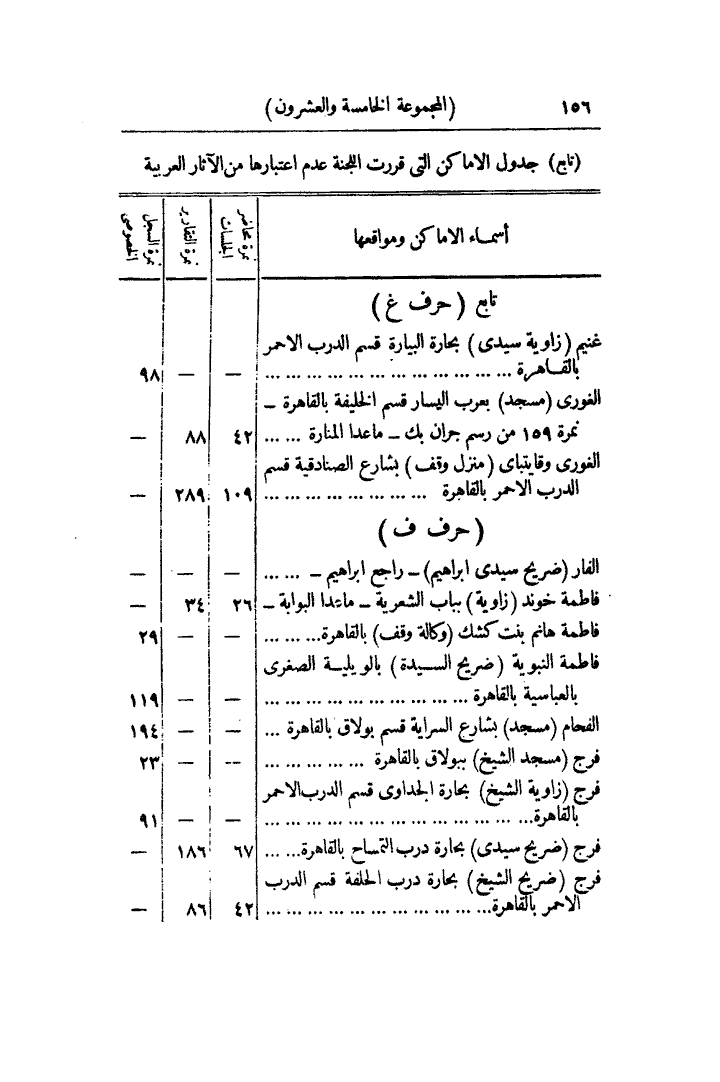 ١٥٦ (المجموعة الخامسة والعشرون)
(تابع) جدول الاماكن التى قررت اللجنة عدم اعتبارها من الآثار العربية
أسماء الاماكن ومواقعها | نمرة محاضر الجلسات | نمرة التقارير | نمرة السجل الخصوصى
تابع (حرف غ)
غنيم (زاوية سيدى) بحارة البيارة قسم الدرب الاحمر
بالقاهرة ... ... ... ... ... ... ... ... ... ... ... — — ٩٨
الغورى (مسجد) بعرب اليسار قسم الخليفة بالقاهرة —
نمرة ١٥٩ من رسم جران بك — ماعدا المنارة ... ... ٤٢ ٨٨ —
الغورى وقايتباى (منزل وقف) بشارع الصنادقية قسم
الدرب الاحمر بالقاهرة ... ... ... ... ... ... ... ... ١٠٩ ٢٨٩ —
(حرف ف)
الفار (ضريح سيدى ابراهيم) — راجع ابراهيم — ... ... — — —
فاطمة خوند (زاوية) بباب الشعرية — ماعدا البوابة — ٢٦ ٣٤ —
فاطمة هانم بنت كشك (وكالة وقف) بالقاهرة... ... ... — — ٢٩
فاطمة النبوية (ضريح السيدة) بالويلية الصغرى
بالعباسية بالقاهرة ... ... ... ... ... ... ... ... ... — — ١١٩
الفحام (مسجد) بشارع السراية قسم بولاق بالقاهرة ... — — ١٩٤
فرج (مسجد الشيخ) ببولاق بالقاهرة ... ... ... ... ... — — ٢٣
فرج (زاوية الشيخ) بحارة الجداوى قسم الدرب الاحمر
بالقاهرة... ... ... ... ... ... ... ... ... ... ... ... — — ٩١
فرج (ضريح سيدى) بحارة درب التمساح بالقاهرة... ... ٦٧ ١٨٦ —
فرج (ضريح الشيخ) بحارة درب الحلفة قسم الدرب
الاحمر بالقاهرة... ... ... ... ... ... ... ... ... ٤٢ ٨٦ —